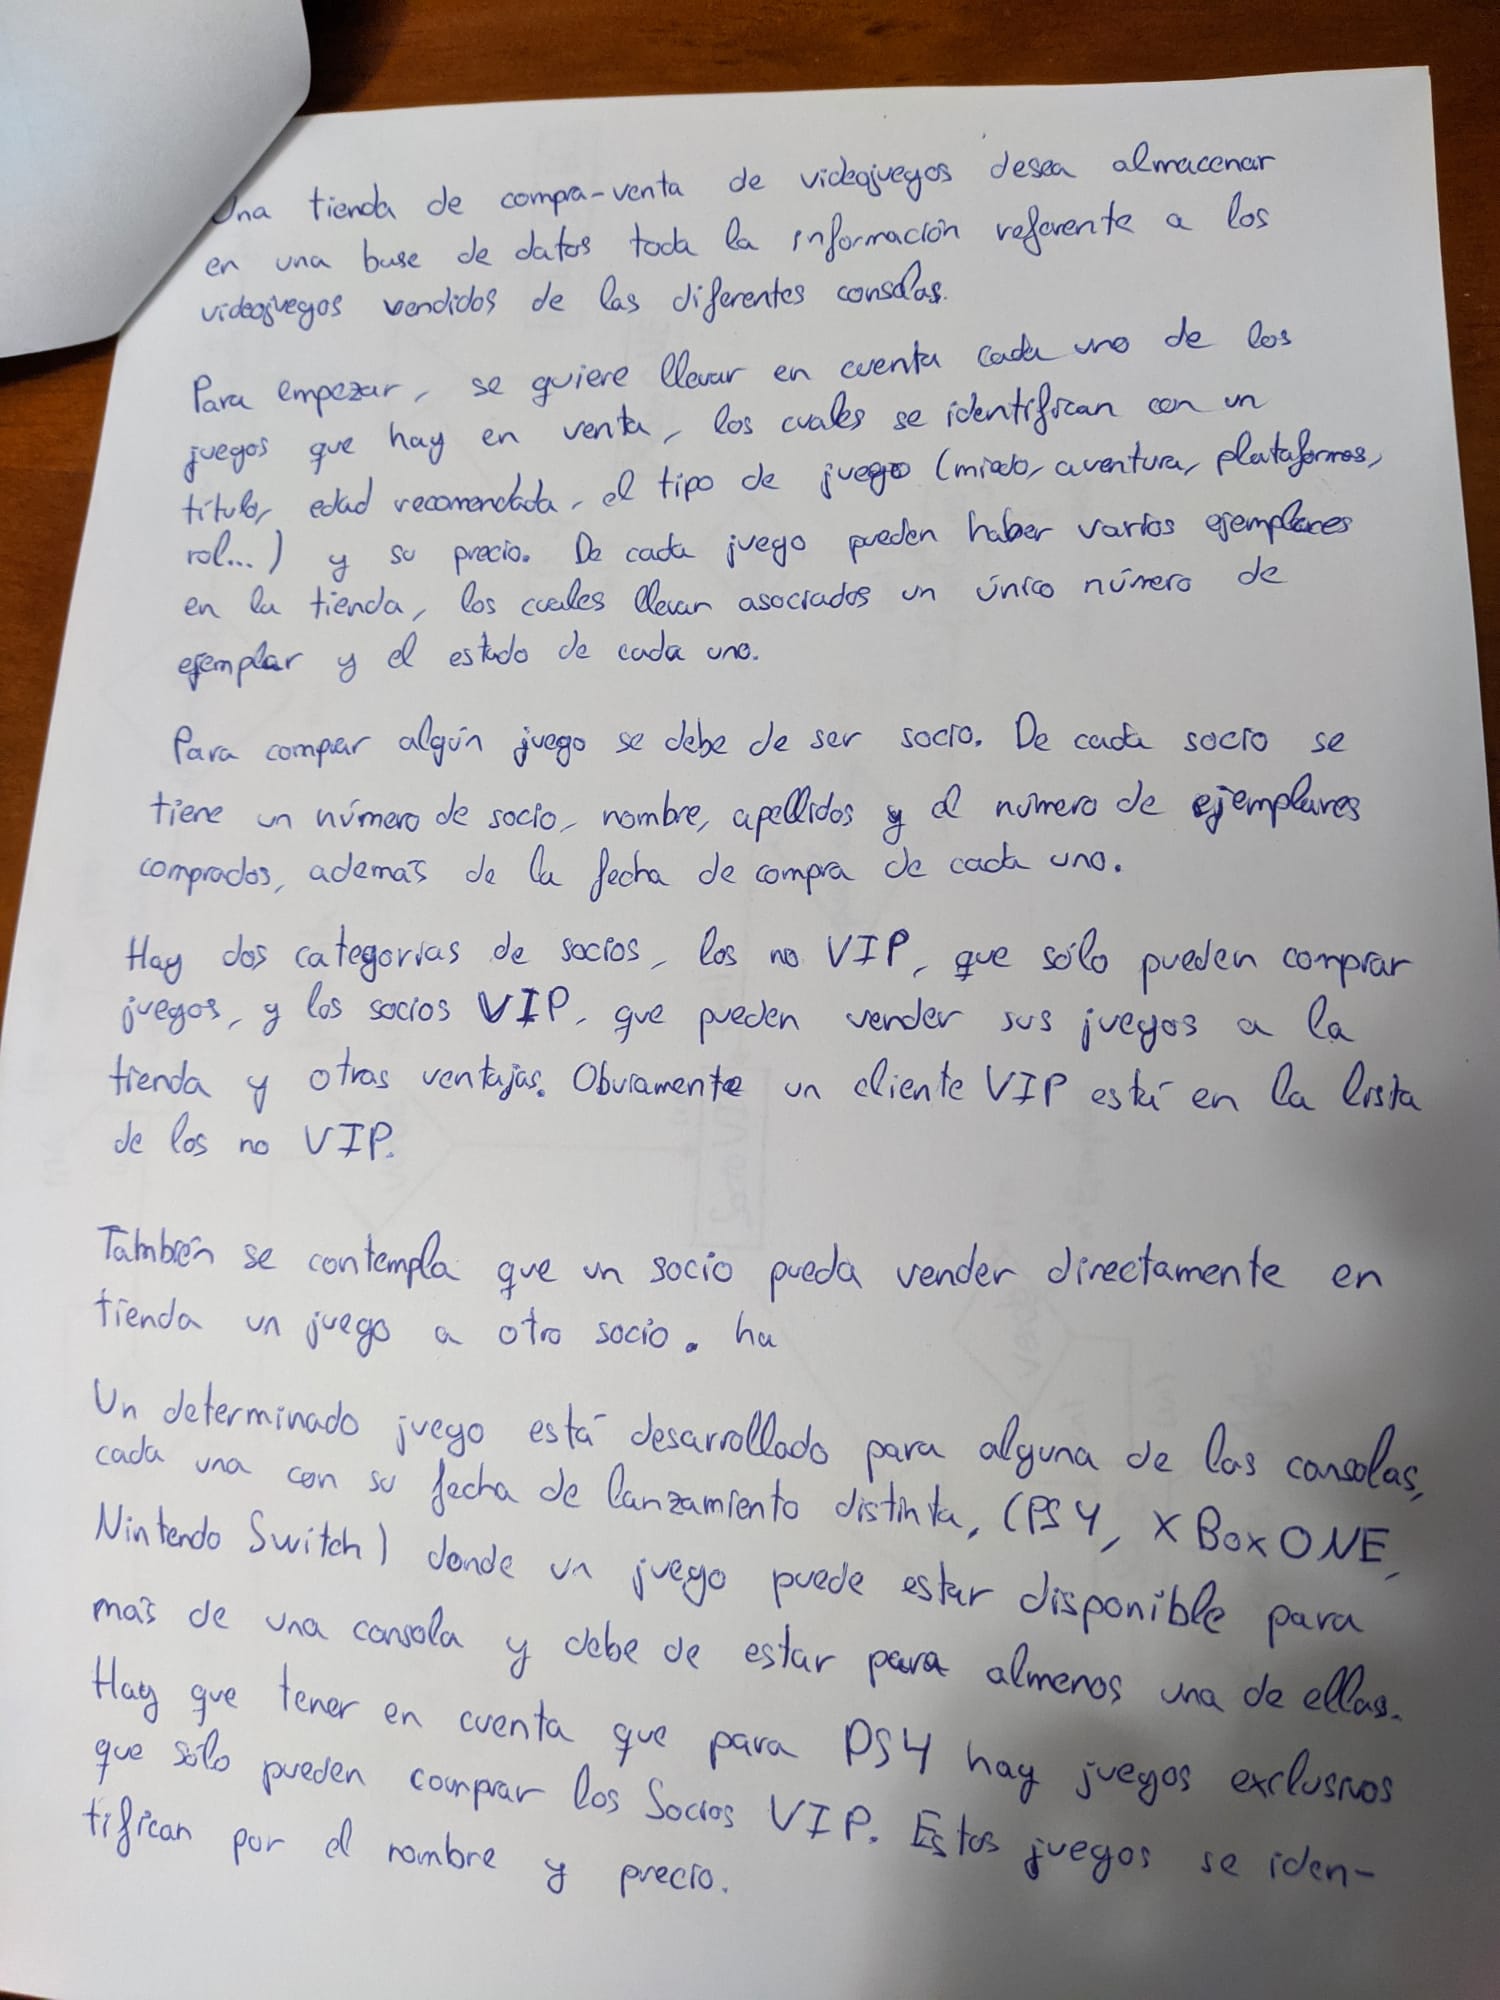 Una tienda de compra-venta de videojuegos desea almacenar
en una base de datos toda la información referente a los
videojuegos vendidos de las diferentes consolas.
Para empezar, se quiere llevar en cuenta cada uno de los
juegos que hay en venta, los cuales se identifican con un
título, edad recomendada, el tipo de juego (miedo, aventura, plataformas,
rol...) y su precio. De cada juego pueden haber varios ejemplares
en la tienda, los cuales llevan asociados un único número de
ejemplar y el estado de cada uno.
Para comprar algún juego se debe de ser socio. De cada socio se
tiene un número de socio, nombre, apellidos y el número de ejemplares
comprados, además de la fecha de compra de cada uno.
Hay dos categorías de socios, los no VIP, que sólo pueden comprar
juegos, y los socios VIP, que pueden vender sus juegos a la
tienda y otras ventajas. Obviamente un cliente VIP está en la lista
de los no VIP.
También se contempla que un socio pueda vender directamente en
tienda un juego a otro socio. ha
Un determinado juego está desarrollado para alguna de las consolas,
cada una con su fecha de lanzamiento distinta, (PS4, XBoxONE,
Nintendo Switch) donde un juego puede estar disponible para
más de una consola y debe de estar para almenos una de ellas.
Hay que tener en cuenta que para PS4 hay juegos exclusivos
que sólo pueden comprar los Socios VIP. Estos juegos se iden-
tifican por el nombre y precio.